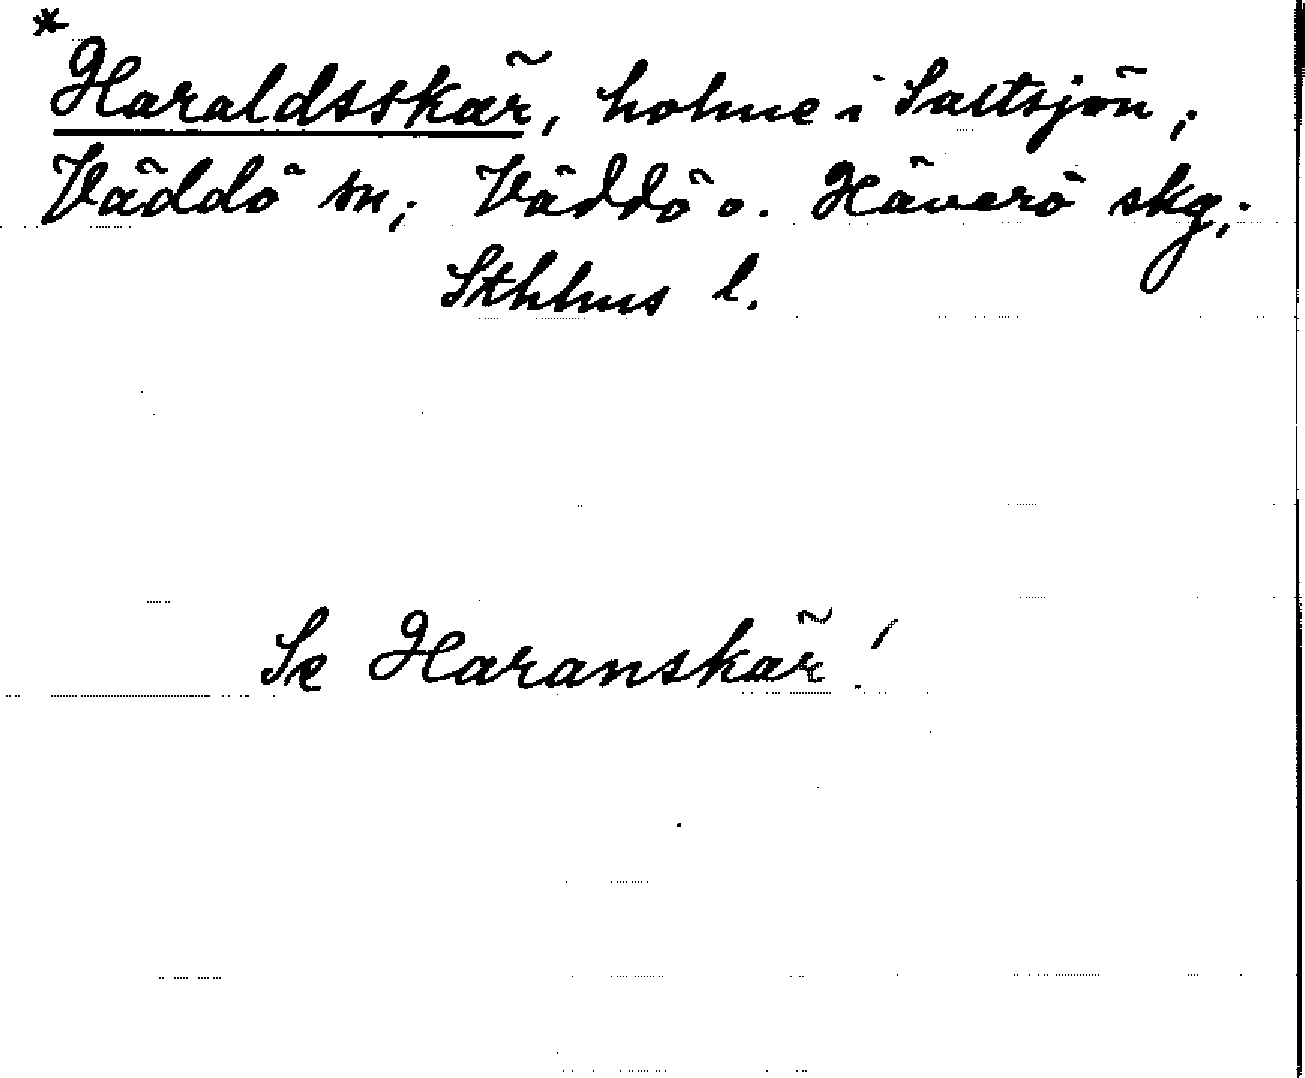 *
Haraldsskär, holme i Saltsjön;
Väddö sn; Väddö o. Häverö skg;
Sthlms l.
Se Haranskär!